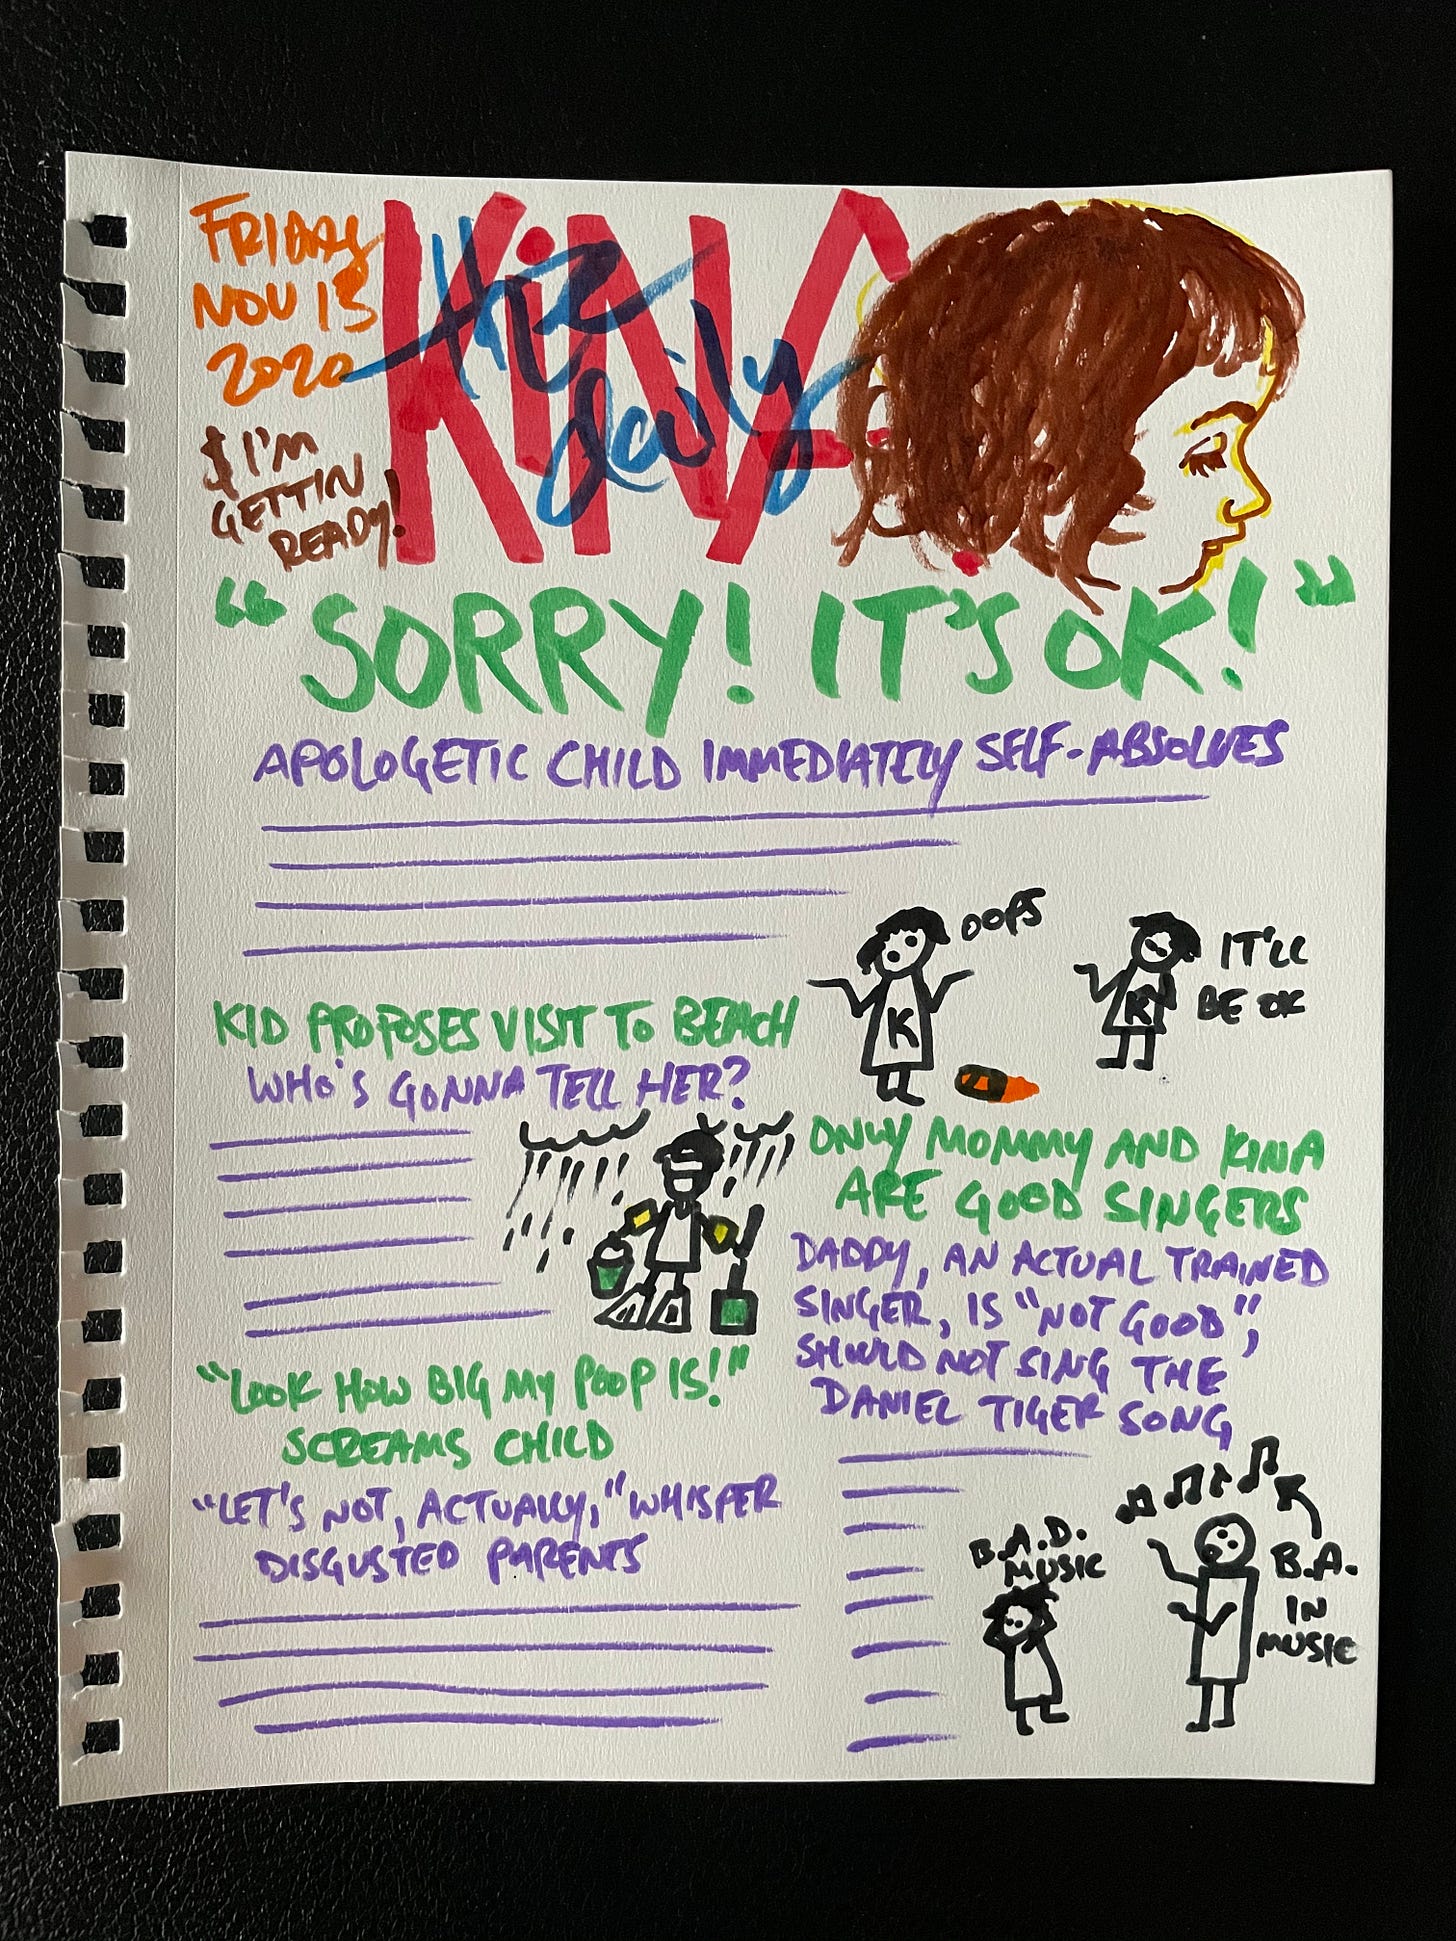 FRIDAY
NOV 13
2020
$ I'M
GETTIN
READY!
KINA
the
daily
"SORRY! IT'S OK!"
APOLOGETIC CHILD IMMEDIATELY SELF-ABSOLVES
OOPS
IT'LL
BE OK
K
K
KID PROPOSES VISIT TO BEACH
WHO'S GONNA TELL HER?
ONLY MOMMY AND KINA
ARE GOOD SINGERS
DADDY, AN ACTUAL TRAINED
SINGER, IS "NOT GOOD",
SHOULD NOT SING THE
DANIEL TIGER SONG
"LOOK HOW BIG MY POOP IS!"
SCREAMS CHILD
"LET'S NOT, ACTUALLY," WHISPER
DISGUSTED PARENTS
B.A.D.
MUSIC
B.A.
IN
MUSIC